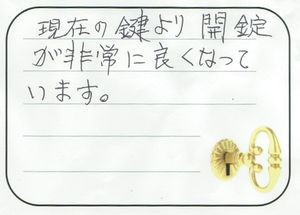 現在の鍵より開錠
が非常に良くなって
います。